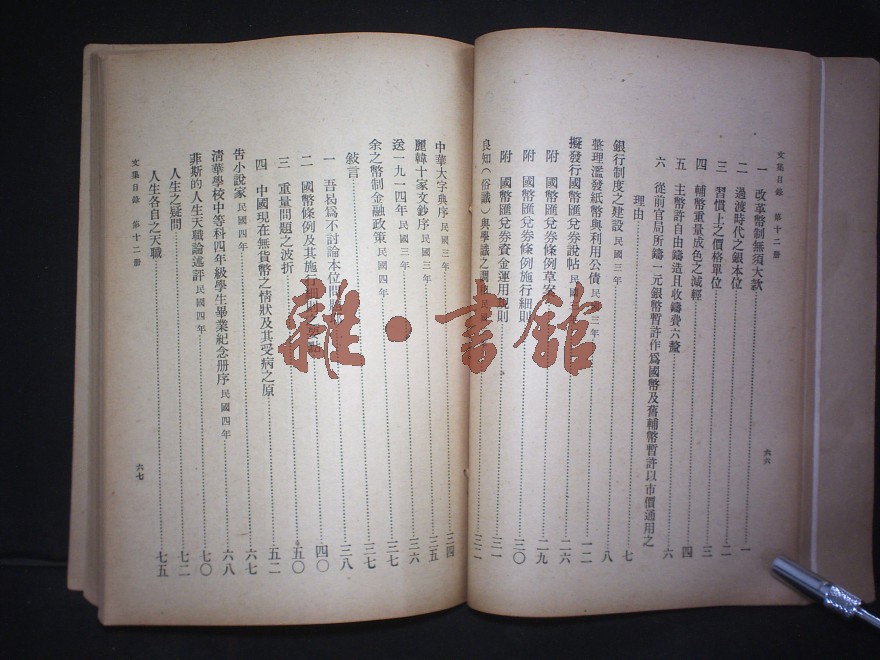 文集目錄 第十二册 六六
一 改革幣制無須大款……一
二 過渡時代之銀本位……二
三 習慣上之價格單位……三
四 輔幣重量成色之減輕……四
五 主幣許自由鑄造且收鑄費六釐……六
六 從前官局所鑄一元銀幣暫許作爲國幣及舊輔幣暫許以市價通用之
理由……七
銀行制度之建設 民國三年……八
整理濫發紙幣與利用公債 民國三年……一二
擬發行國幣匯兌券說帖 民國……二六
附 國幣匯兌券條例草案……二九
附 國幣匯兌券條例施行細則……三〇
附 國幣匯兌券資金運用規則……三一
良知（俗識）與學識之調……三二
中華大字典序 民國三年……三四
麗韓十家文鈔序 民國三年……三五
送一九一四年 民國三年……三六
余之幣制金融政策 民國四年……三七
敍言……三七
一 吾曷爲不討論本位問……三八
二 國幣條例及其施行細則……四〇
三 重量問題之波折……五〇
四 中國現在無貨幣之情狀及其受病之原……五二
告小說家 民國四年……六七
清華學校中等科四年級學生畢業紀念册序 民國四年……六八
菲斯的人生天職論述評 民國四年……七〇
人生之疑問……七二
人生各自之天職……七五
文集目錄 第十二册 六七
雜·書館